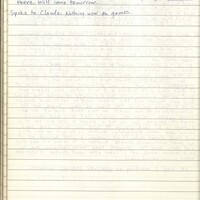 there. Will come tomorrow.
Spoke to Claude. Nothing new on games.